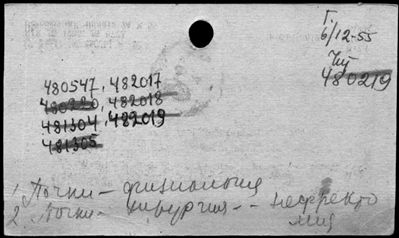 Г.
6/12-55
480219
480547, 482017
480220, 482018
481304, 482019
481305
1 Почки - физиология
2 Почки - хирургия -- нефректо
мия